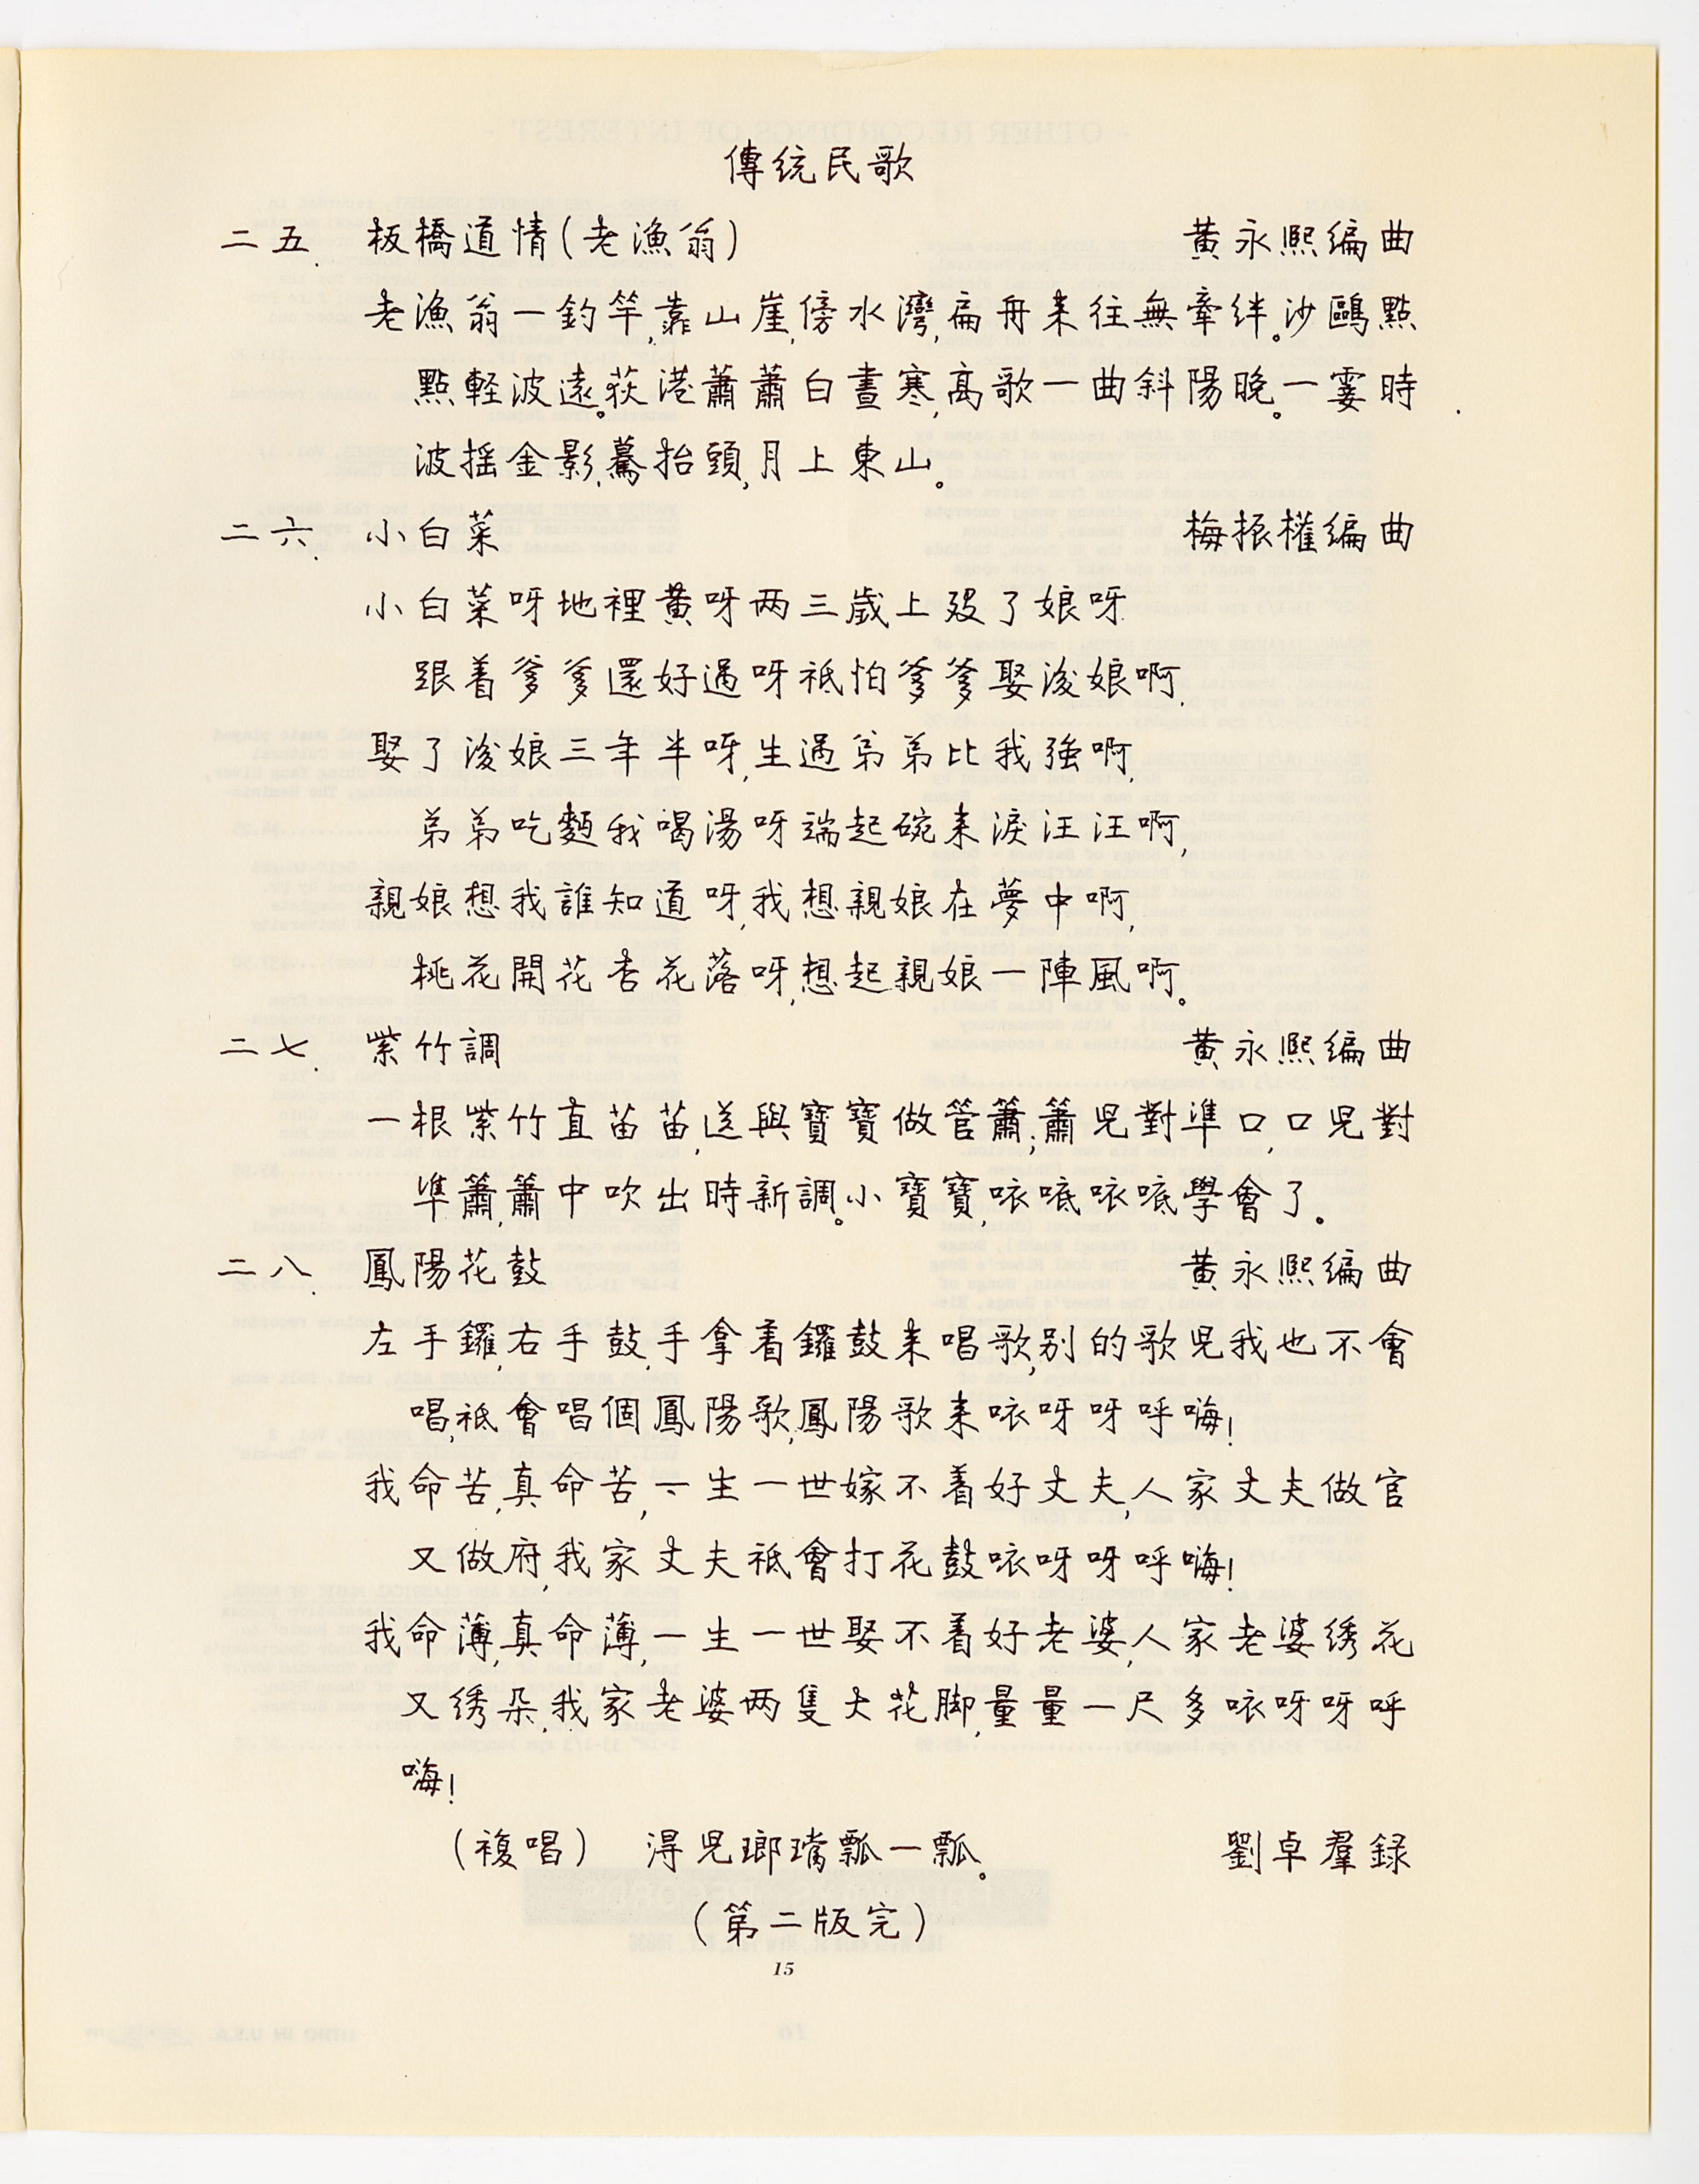 傳統民歌
二五. 板橋道情(老漁翁) 黃永熙編曲
老漁翁一釣竿,靠山崖,傍水灣,扁舟来往無牽絆。沙鷗點
點軽波遠。荻港蕭蕭白晝寒,高歌一曲斜陽晚。一霎時
波摇金影,驀抬頭,月上東山。
二六. 小白菜 梅振權編曲
小白菜呀地裡黃呀两三歲上殁了娘呀
跟着爹爹還好過呀祇怕爹爹娶後娘啊.
娶了後娘三年半呀,生過弟弟比我強啊,
弟弟吃麵我喝湯呀端起碗来淚汪汪啊,
親娘想我誰知道呀,我想親娘在夢中啊,
桃花開花杏花落呀,想起親娘一陣風啊。
二七. 紫竹調 黃永熙編曲
一根紫竹直苗苗,送與寶寶做管簫;簫兒對準口,口兒對
準簫,簫中吹出時新調。小寶寶,咿哑咿哑學會了。
二八. 鳳陽花鼓 黃永熙編曲
左手鑼,右手鼓,手拿着鑼鼓来唱歌,别的歌兒我也不會
唱,祇會唱個鳳陽歌,鳳陽歌来咿呀呀呼嗨!
我命苦,真命苦,一生一世嫁不着好丈夫,人家丈夫做官
又做府,我家丈夫祇會打花鼓咿呀呀呼嗨!
我命薄,真命薄,一生一世娶不着好老婆,人家老婆绣花
又绣朵,我家老婆两隻大花脚,量量一尺多咿呀呀呼
嗨!
(複唱) 得兒瑯璫瓢一瓢。 劉卓羣録
(第二版完)
15